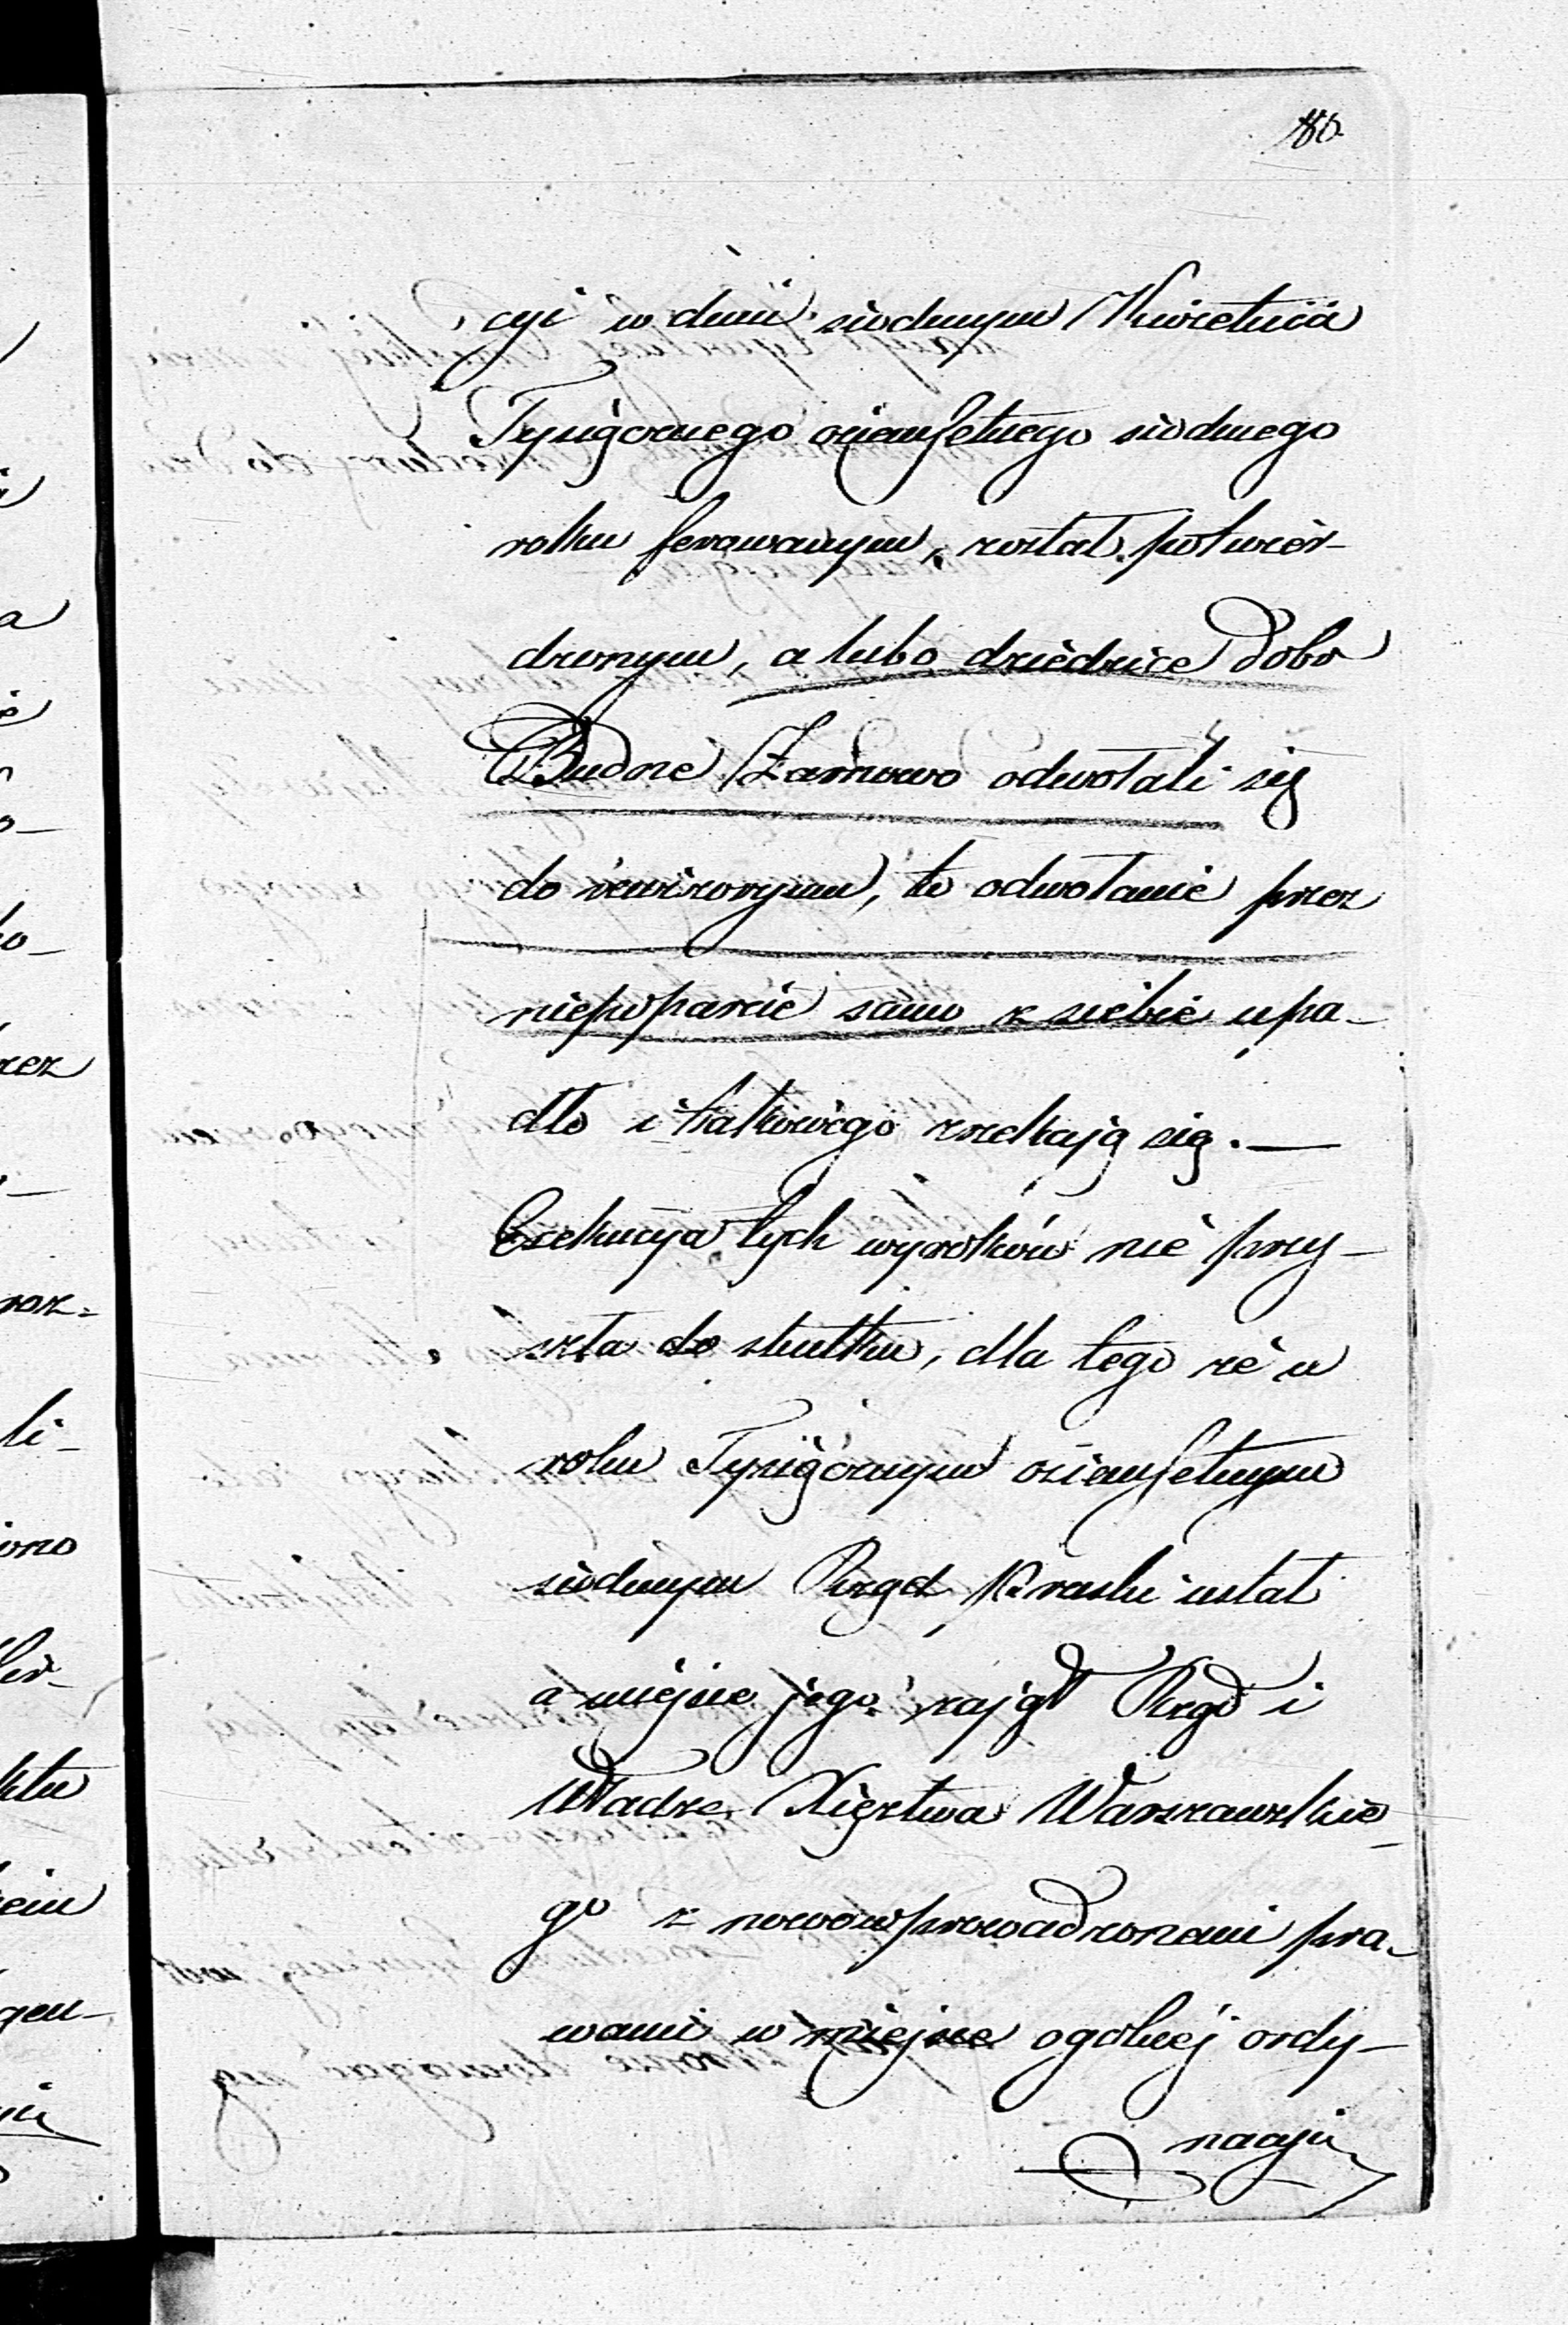 180.
cyi w dniu siodmym Kwietnia
Tysiącznego osiemsetnego siodmego
roku ferowanym, został potwier-
dzonym, a lubo dziedzice Dobr
Budne Żarnowo odwołali się
do rewizoryum, to odwołanie przez
niepoparcie samo z siebie upa-
dło i takowego zrzekają się. —
Exekucya tych wyroków nie przy-
szła do skutku, dla tego że w
roku Tysiącznym osiemsetnym
siodmym Rząd Pruski ustał
a miejsce jego zajął Rząd i
Władze Xięztwa Warszawskie-
go z nowowprowadzonemi pra-
wami w miejsce ogolnej ordy-
nacyi